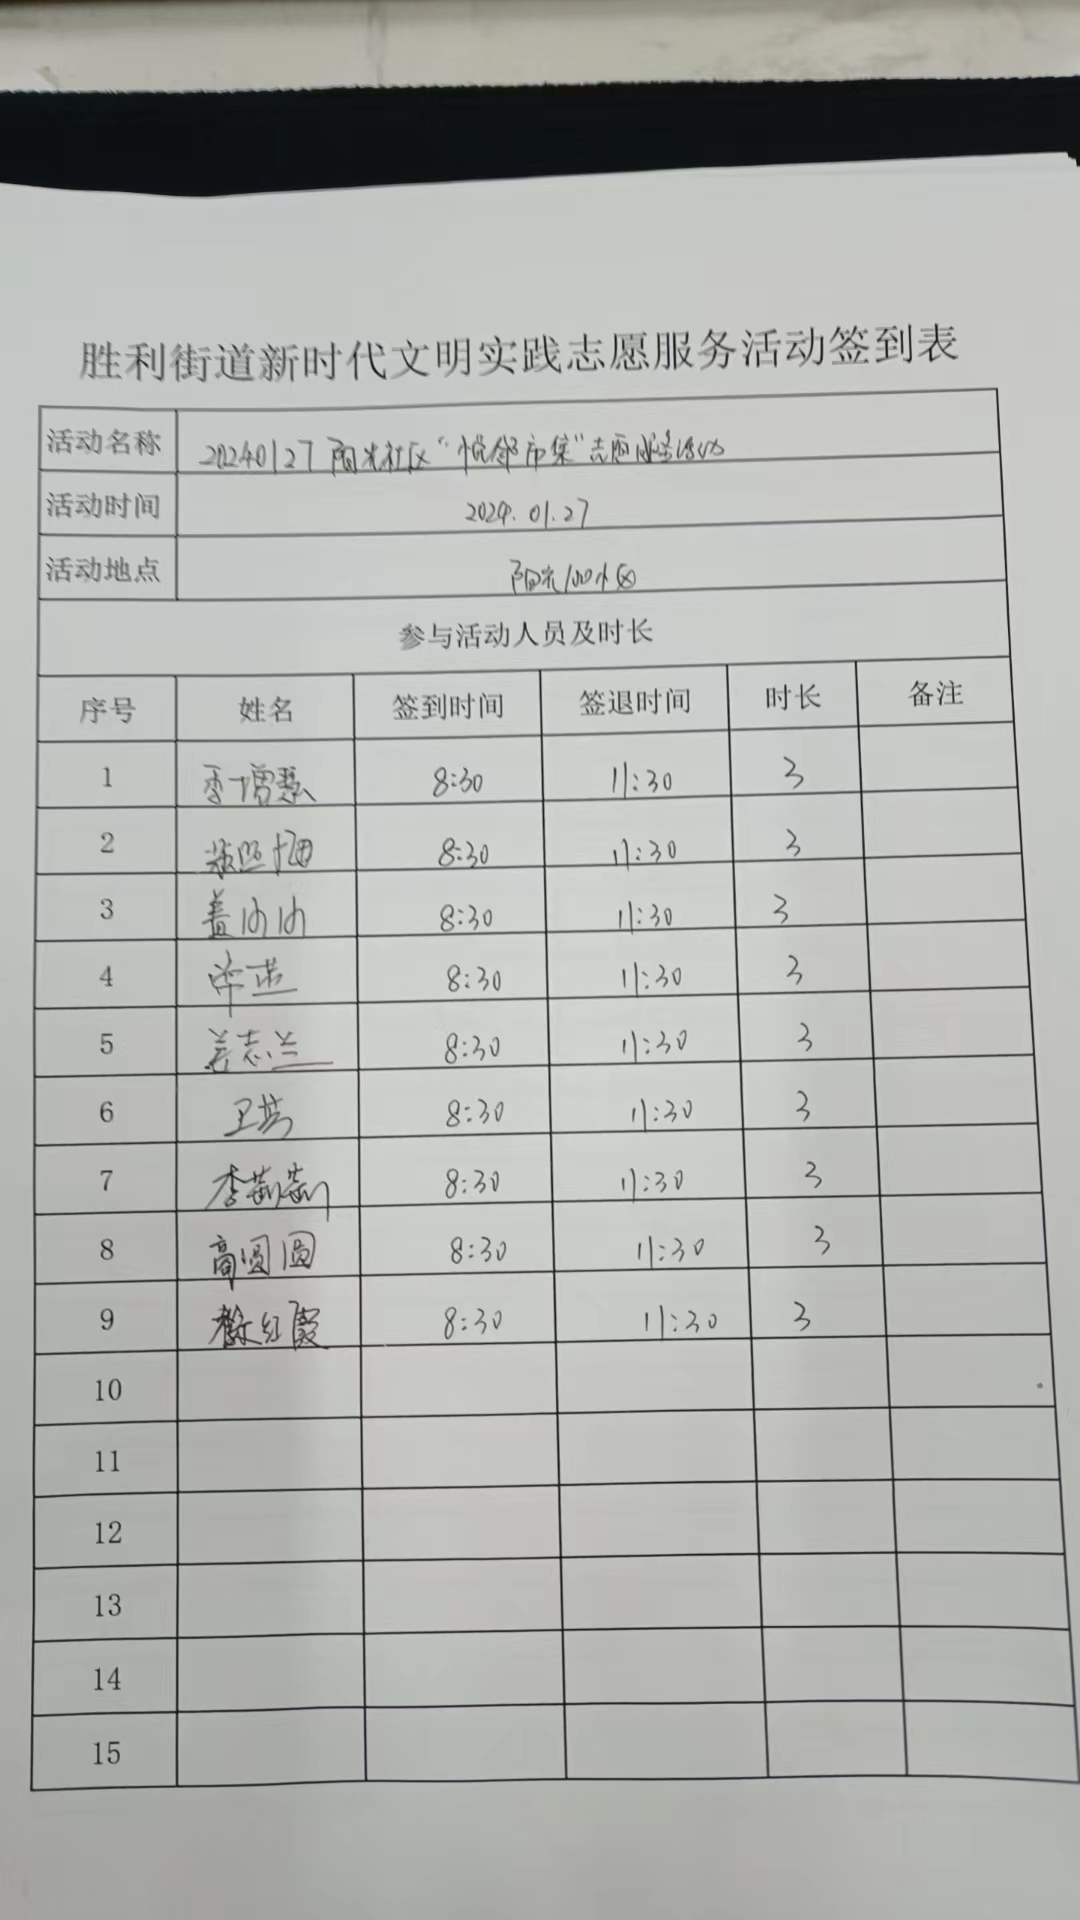 胜利街道新时代文明实践志愿服务活动签到表
活动名称 20240127阳光社区“悦邻市集”志愿服务活动
活动时间 2024.01.27
活动地点 阳光100小区
参与活动人员及时长
序号 姓名 签到时间 签退时间 时长 备注
1 李增慧 8:30 11:30 3
2 8:30 11:30 3
3 8:30 11:30 3
4 8:30 11:30 3
5 姜志兰 8:30 11:30 3
6 卫芸 8:30 11:30 3
7 李莉莉 8:30 11:30 3
8 高圆圆 8:30 11:30 3
9 红霞 8:30 11:30 3
10
11
12
13
14
15